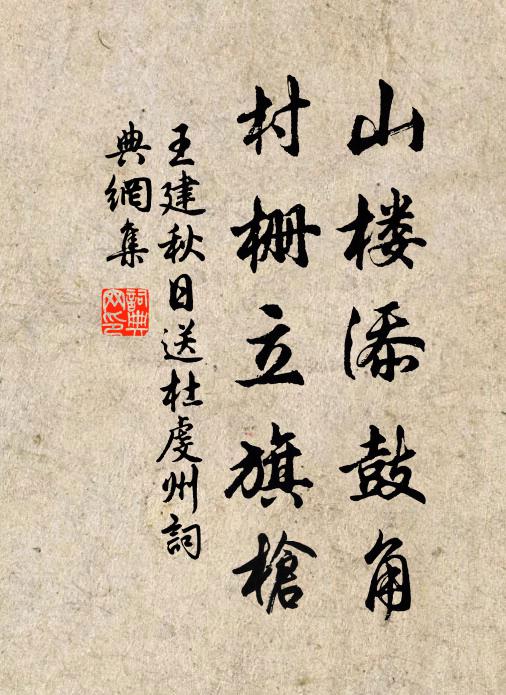 山楼添鼓角
村栅立旗槍
王建秋日送杜虔州詞
典網集
詞典網印